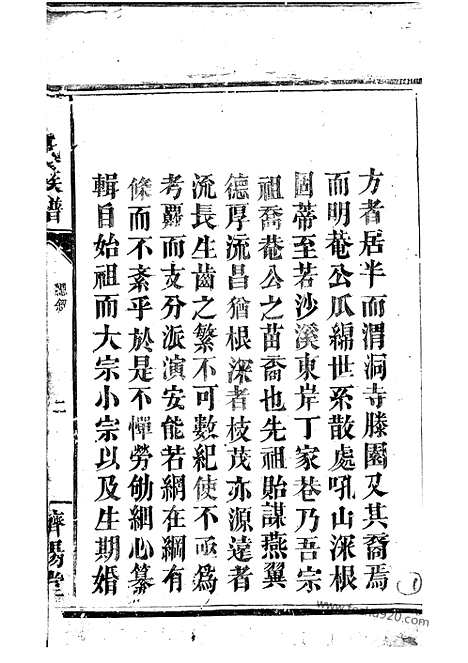 方者居半而渭洞寺滕園又其裔焉
而明菴公瓜綿世系散處吼山深根
固蒂至若沙溪東岸丁家巷乃吾宗
祖喬菴公之苗裔也先祖貽謀燕翼
德厚流昌猶根深者枝茂亦源遠者
流長生齒之繁不可數紀使不亟爲
考覈而支分派演安能若網在綱有
條而不紊乎於是不憚勞勩綱心纂
輯自始祖而大宗小宗以及生期婚
氏族譜
總敘
二
濟陽堂
1